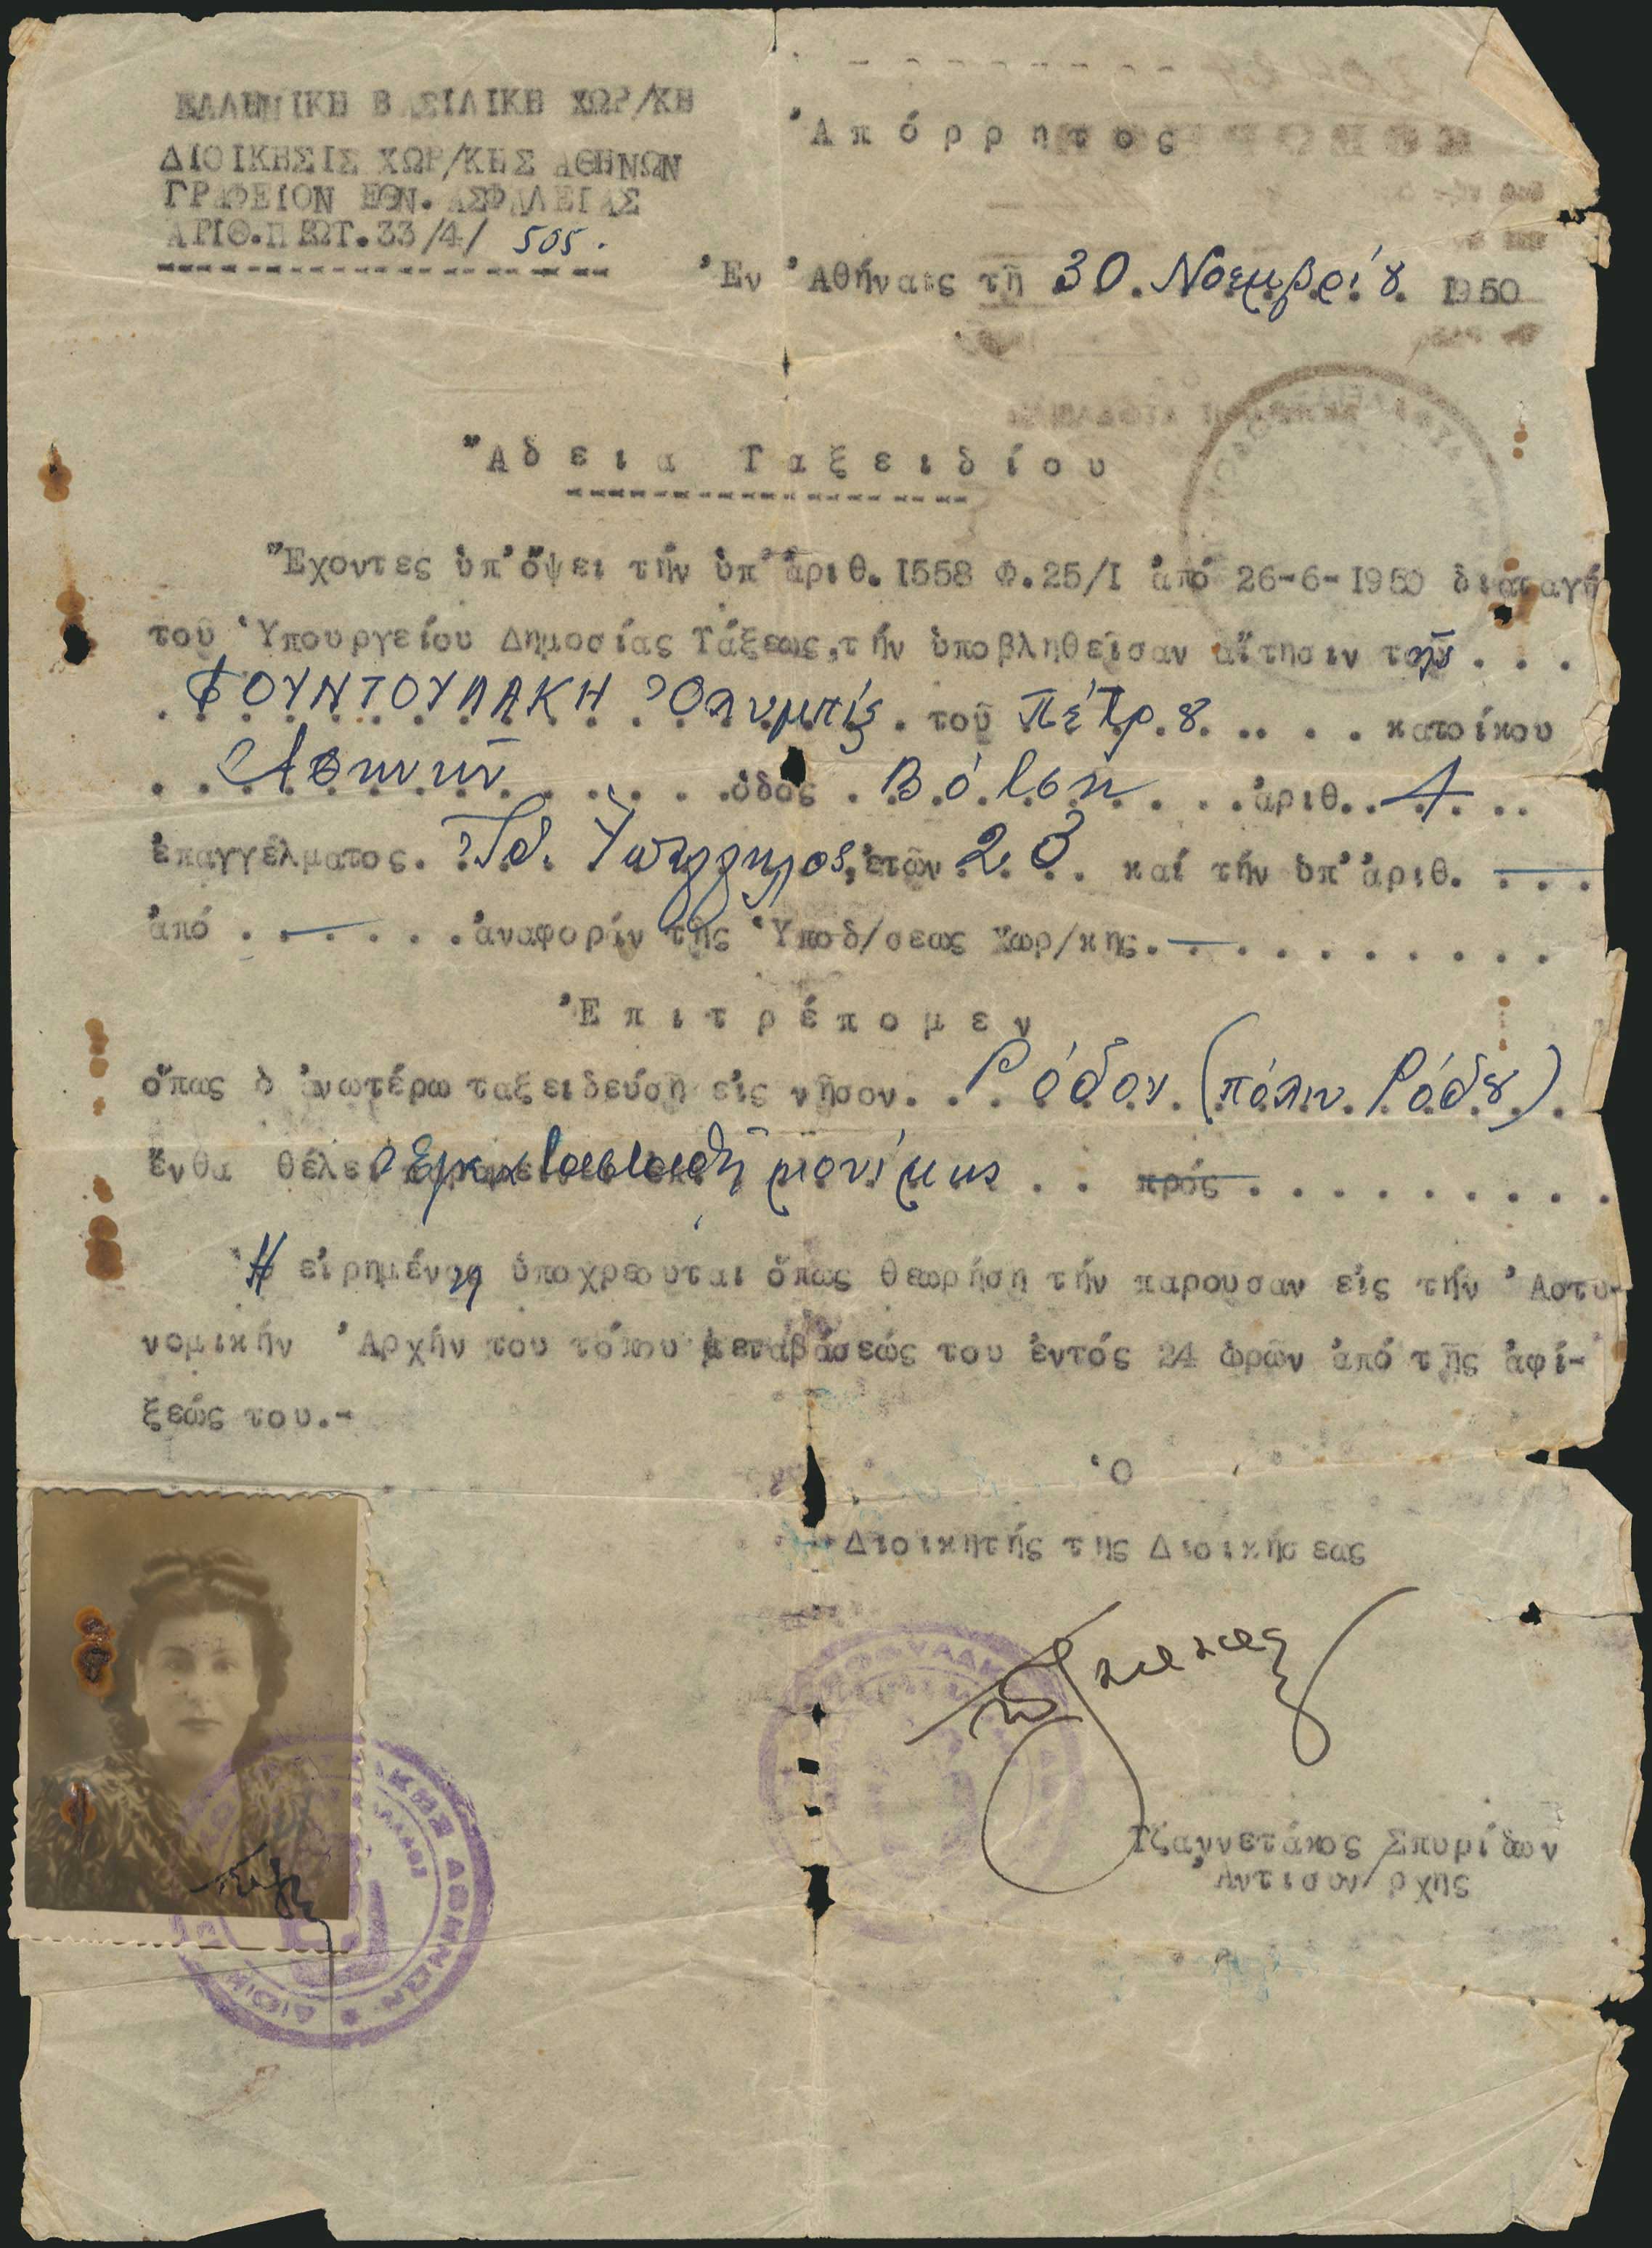 ΕΛΛΗΝΙΚΗ ΒΑΣΙΛΙΚΗ ΧΩΡ/ΚΗ
Ἀπόρρητος
ΔΙΟΙΚΗΣΙΣ ΧΩΡ/ΚΗΣ ΑΘΗΝΩΝ
ΓΡΑΦΕΙΟΝ ΕΘΝ. ΑΣΦΑΛΕΙΑΣ
ΑΡΙΘ.ΠΡΩΤ.33/4/ 505.
Ἐν Ἀθήναις τῇ 30 Νοεμβρίου 1950
Ἄδεια Ταξειδίου
Ἔχοντες ὑπ' ὄψει τήν ὑπ' ἀριθ. Ι558 Φ.25/Ι ἀπό 26-6-Ι950 διαταγή
τοῦ Ὑπουργείου Δημοσίας Τάξεως, τήν ὑποβληθεῖσαν αἴτησιν τῆς . . .
ΦΟΥΝΤΟΥΛΑΚΗ Ὀλυμπίς. τοῦ Πέτρου . . . . κατοίκου
Ἀθηνῶν . . . . ὁδός . Βόλση . . . ἀριθ. . 4 . . .
ἐπαγγέλματος. Ἰδ. Ὑπάλληλος, ἐτῶν 23 . καί τήν ὑπ' ἀριθ. — . . .
ἀπό . — . . . . ἀναφοράν τῆς Ὑποδ/σεως Χωρ/κης. — . . . . . . . . .
Ἐπιτρέπομεν
ὅπως ὁ ἀνωτέρω ταξειδεύσῃ εἰς νῆσον. . . Ρόδον (πόλιν Ρόδου) .
ἔνθα θέλει ἐγκατασταθῇ μονίμως . . πρός . . . . . . . . .
Ἡ εἰρημένη ὑποχρεοῦται ὅπως θεωρήσῃ τήν παροῦσαν εἰς τήν Ἀστυ-
νομικήν Ἀρχήν του τόπου μεταβάσεώς του ἐντός 24 ὡρῶν ἀπό τῆς ἀφί-
ξεώς του.-
Ὁ
Διοικητής της Διοικήσεως
Τζαννετάκος Σπυρίδων
Ἀντισυν/ρχης
ΑΘΗΝΩΝ